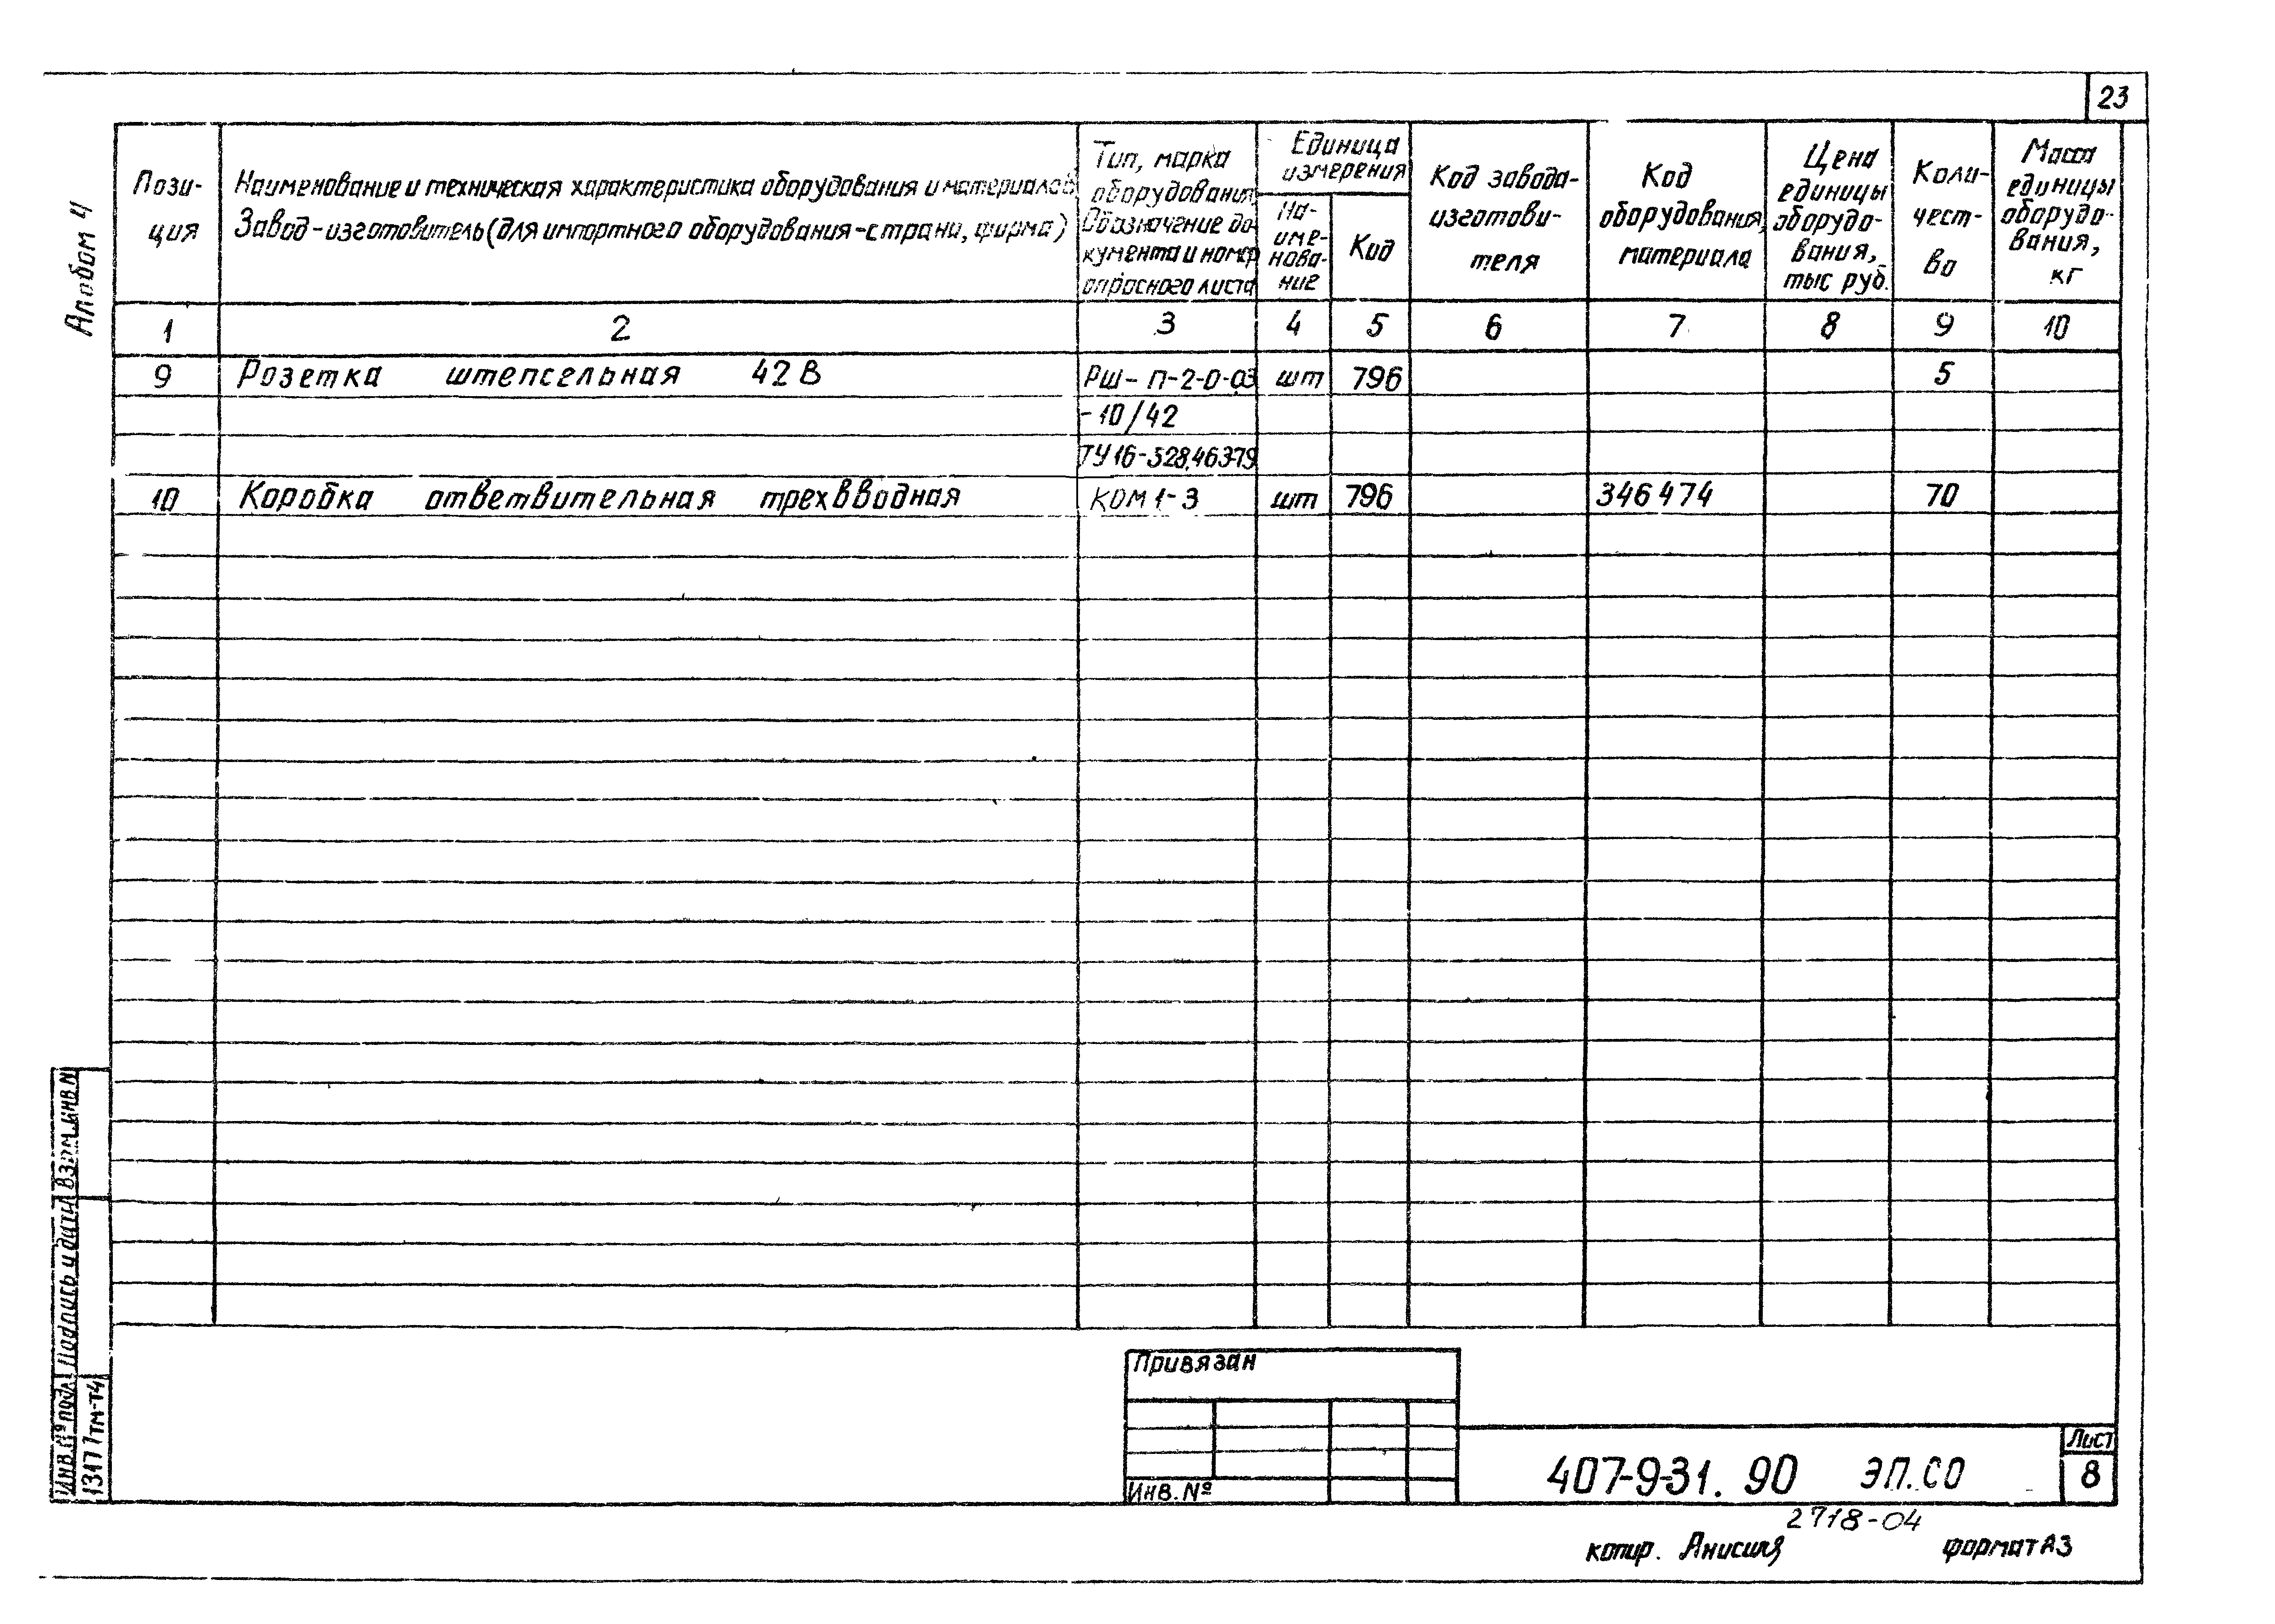 23
Альбом 4
Пози-
ция
Наименование и техническая характеристика оборудования и материалов
Завод-изготовитель (для импортного оборудования-страна, фирма)
Тип, марка
оборудования
Обозначение до-
кумента и номер
опросного листа
Единица
измерения
На-
име-
нова-
ние
Код
Код завода-
изготови-
теля
Код
оборудования,
материала
Цена
единицы
оборудо-
вания,
тыс руб.
Коли-
чест-
во
Масса
единицы
оборудо-
вания,
кг
1 2 3 4 5 6 7 8 9 10
9 Розетка штепсельная 42В РШ-П-2-0-03 шт 796 5
-10/42
ТУ16-528.463-79
10 Коробка ответвительная трехвводная КОМ1-3 шт 796 346474 70
Взам.инв.N
Подпись и дата
Инв.№подл
13171тм-т4
Привязан
Инв.№
407-9-31.90 ЭП.СО
Лист
8
2718-04
копир. формат А3